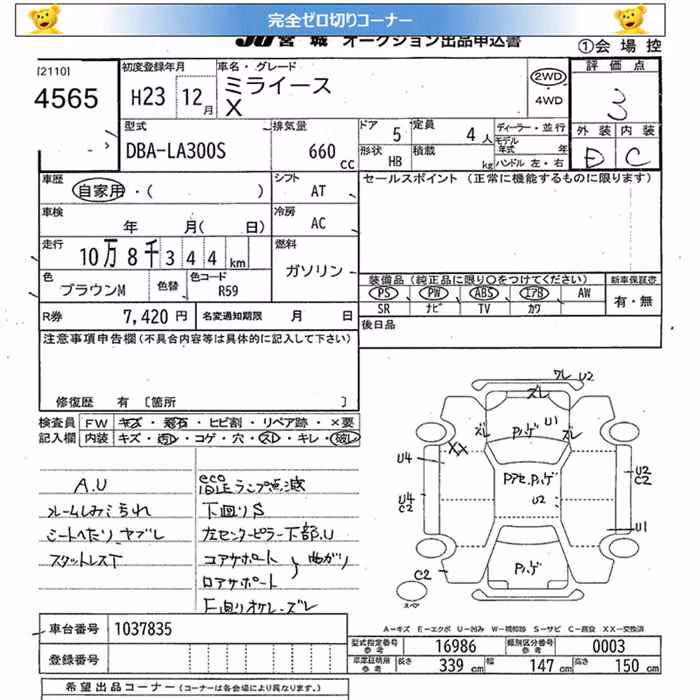 完全ゼロ切りコーナー
JU 宮城 オークション出品申込書
①会場控
[2110]
4565
初度登録年月 H23 12月
車名・グレード ミライース
X
2WD
4WD
評価点
3
外装 内装
D C
型式 DBA-LA300S
排気量 660 cc
ドア 5
定員 4人
ディーラー・並行
モデル年式 年
形状 HB
積載 kg
ハンドル 左・右
車歴 自家用・( )
シフト AT
セールスポイント (正常に機能するものに限ります)
車検 年 月( 日)
冷房 AC
走行 10万8千344km
燃料 ガソリン
色 ブラウンM
色替
色コード R59
装備品(純正品に限り○をつけてください)
新車保証書
PS PW ABS エアB AW
有・無
SR ナビ TV カワ
R券 7,420円
名変通知期限 月 日
後日品
注意事項申告欄(不具合内容等は具体的に記入して下さい)
修復歴 有 [箇所 ]
検査員 FW キズ・飛石・ヒビ割・リペア跡・×要
記入欄 内装 キズ・汚レ・コゲ・穴・スレ・キレ・破レ
A.U
ルームしみこられ
シートへたり、ヤブレ
スタットレスT
eco
IDLEランプ点滅
下廻りS
左センターピラー下部.U
コアサポート
ロアサポート
曲がり
下廻りオケレーズレ
ワレ U2
ズレ
U1
ズレ
Pハゲ
ズレ
XX
U4
Pアセ.Pハゲ
U2
C2
U4
C2
U2
U1
Pハゲ
C2
スペア
A-キズ E-エクボ U-凹み W-補修跡 S-サビ C-腐食 XX-交換済
車台番号 1037835
型式指定番号 参考 16986
類別区分番号 参考 0003
登録番号
車庫証明用 参考 長さ 339cm 幅 147cm 高さ 150cm
希望出品コーナー (コーナーは各会場により異なります。)